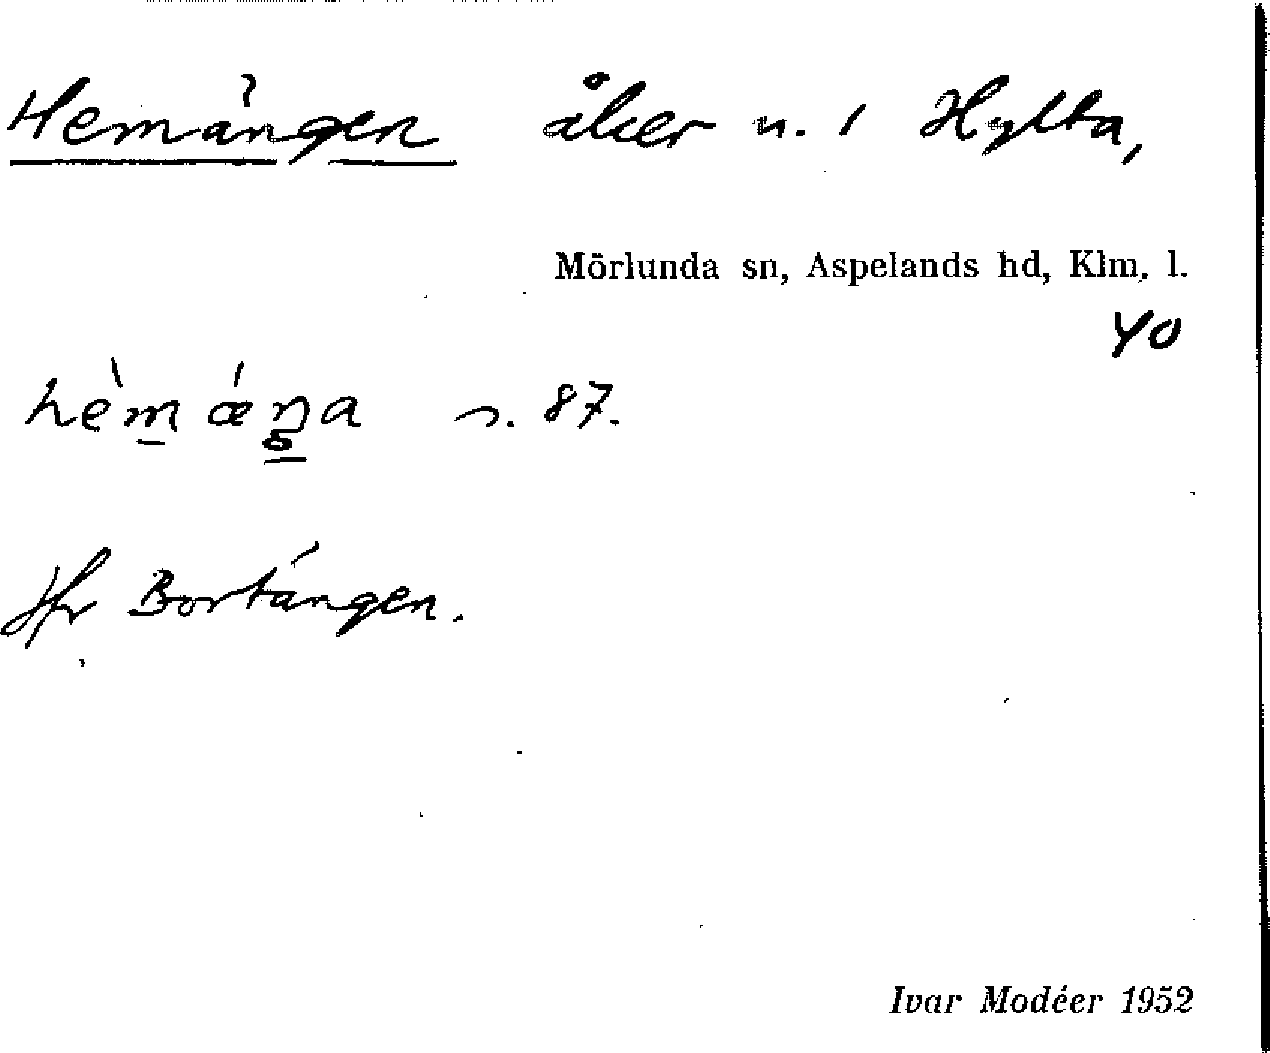 Hemängen åker n. 1 Hylta,
Mörlunda sn, Aspelands hd, Klm. l.
40
hèmǽŋa s. 87.
Jfr Bortängen.
Ivar Modéer 1952